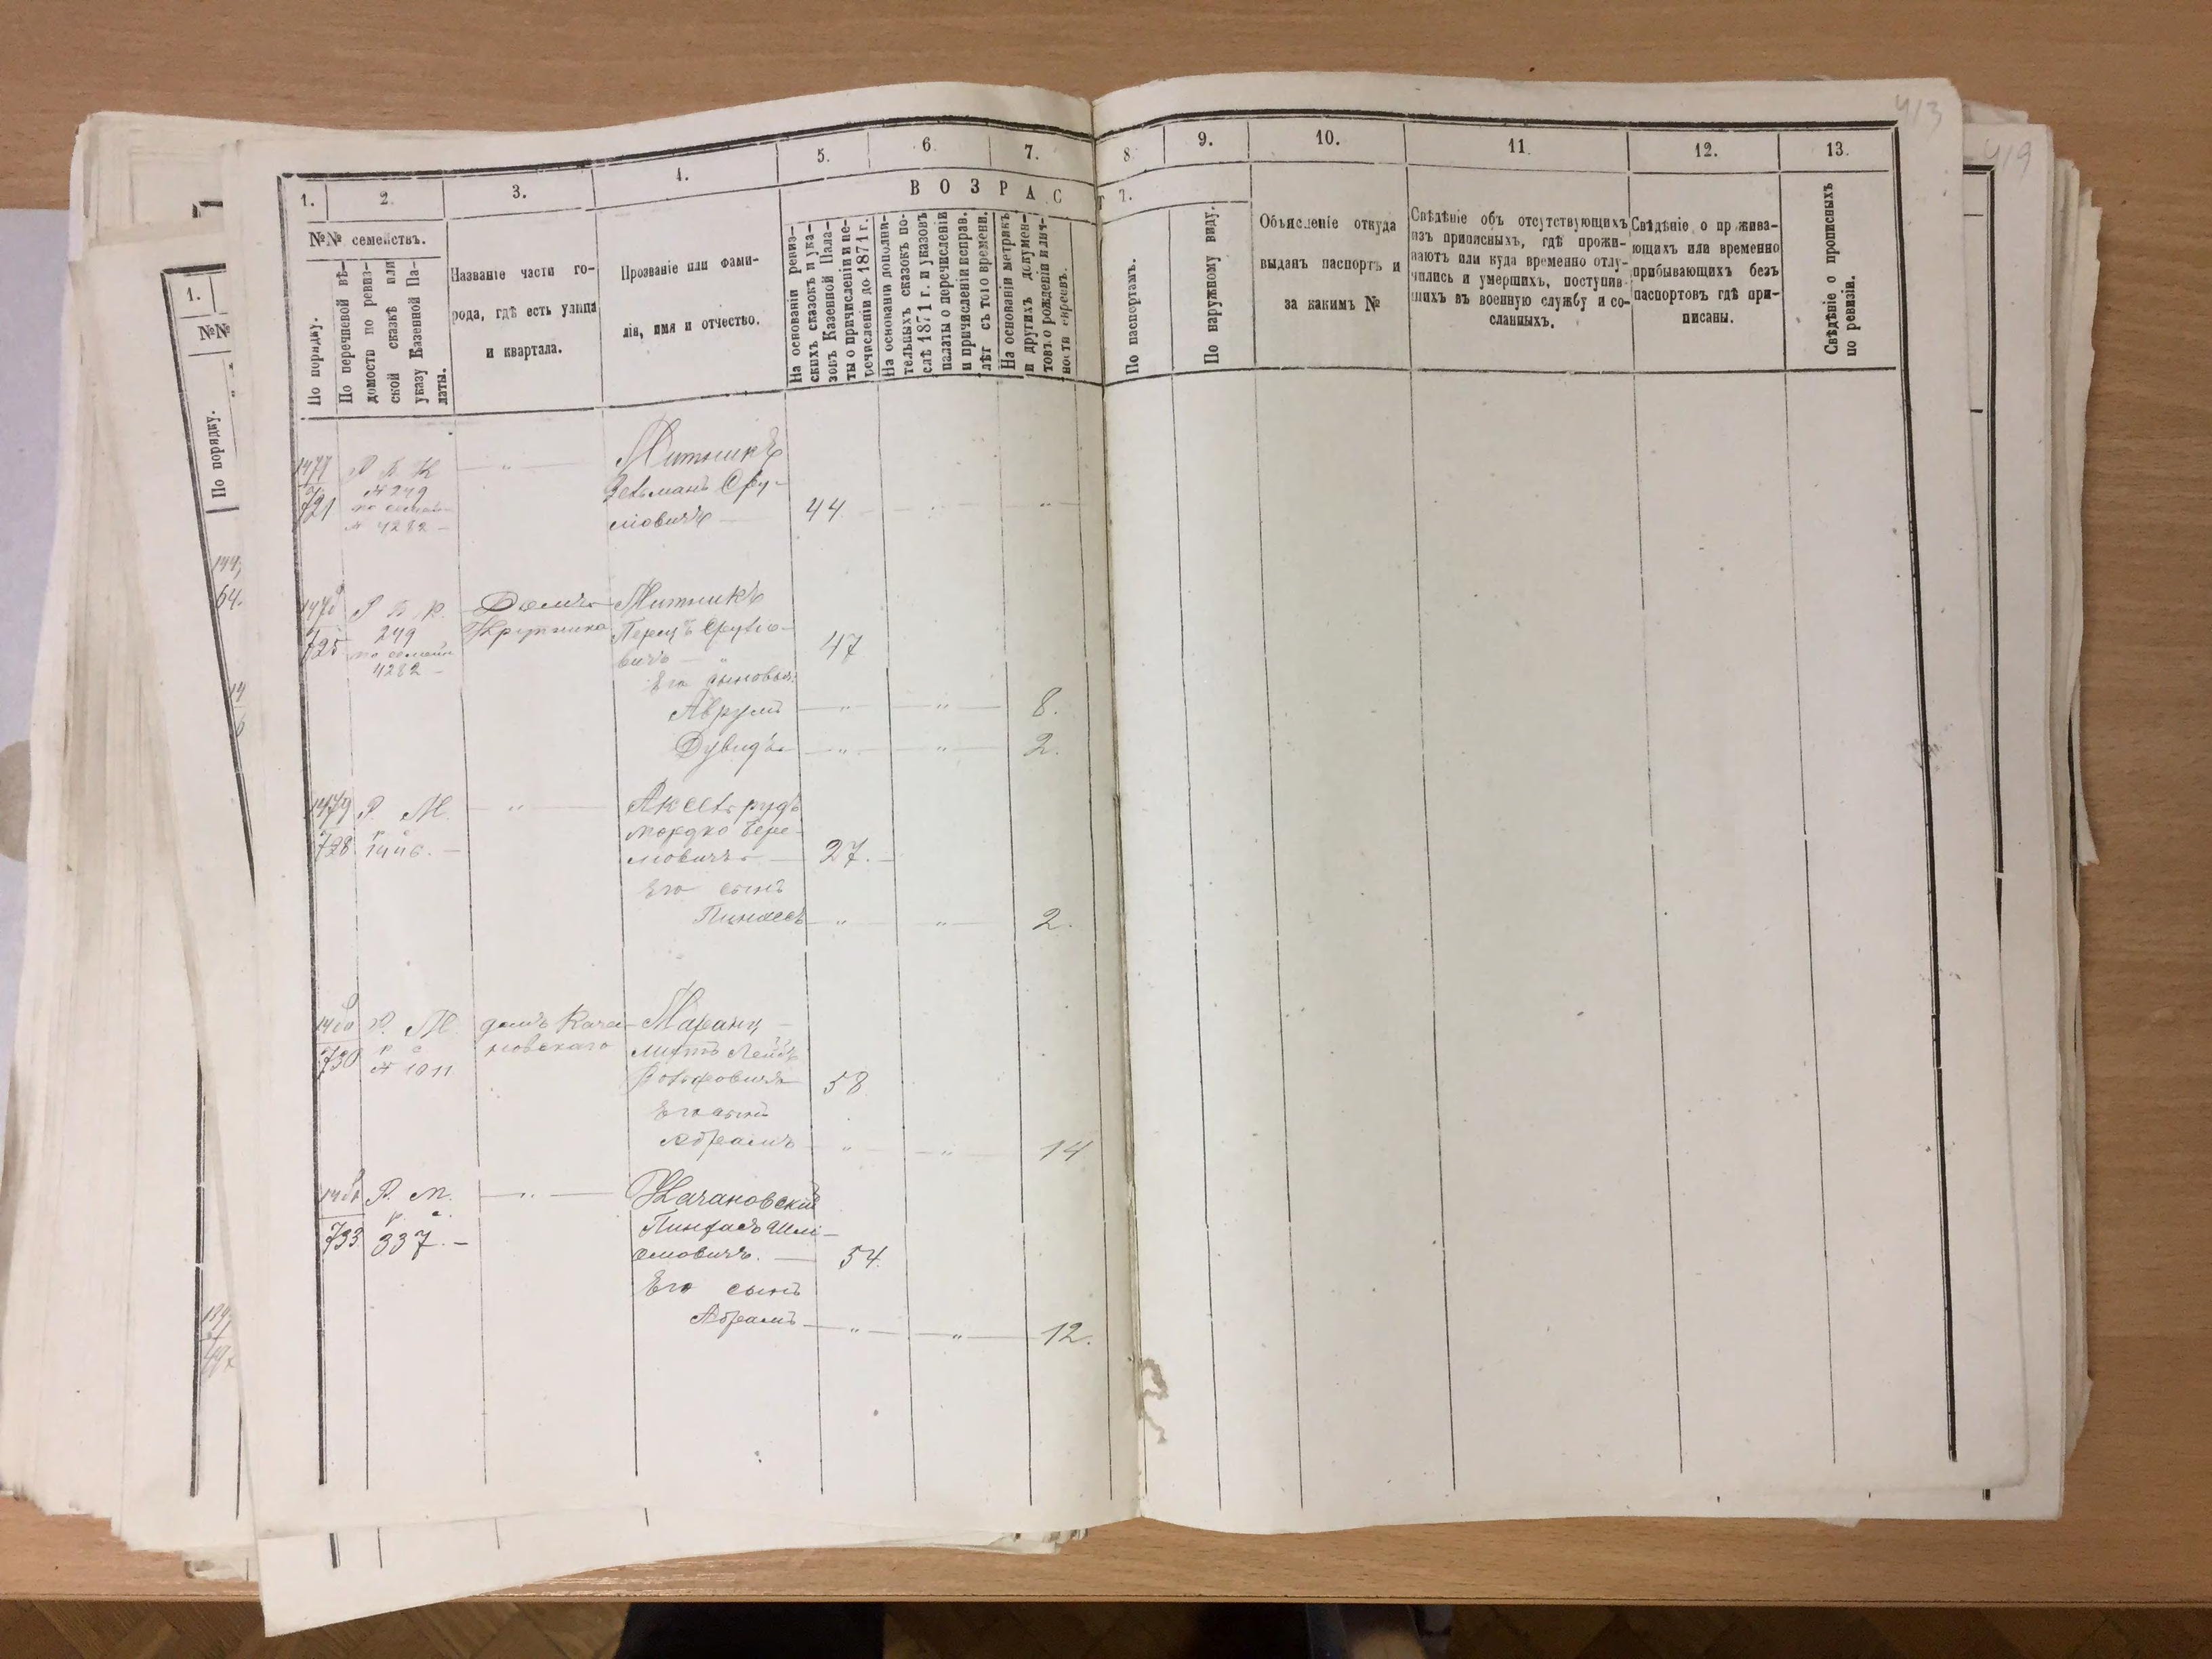 413
419
1. 2. 3. 4. 5. 6. 7. 8. 9. 10. 11. 12. 13.
В О З Р А С Т Ъ.
№№ семействъ.
По порядку.
По перечневой вѣ-
домости по ревиз-
ской сказкѣ или
указу Казенной Па-
латы.
Названіе части го-
рода, гдѣ есть улица
и квартала.
Прозваніе или фами-
лія, имя и отчество.
На основаніи ревиз-
скихъ сказокъ и ука-
зовъ Казенной Пала-
ты о причисленіи и пе-
речисленіи до 1871 г.
На основаніи дополни-
тельныхъ сказокъ по-
слѣ 1871 г. и указовъ
палаты о перечисленіи
и причисленіи исправ.
лѣт съ того времени.
На основаніи метрикъ
и другихъ докумен-
товъ о рожденіи и лич-
ности евреевъ.
По паспортамъ.
По наружному виду.
Объясненіе откуда
выданъ паспортъ и
за какимъ №
Свѣдѣніе объ отсутствующихъ
изъ приписныхъ, гдѣ прожи-
ваютъ или куда временно отлу-
чились и умершихъ, поступив-
шихъ въ военную службу и со-
сланныхъ.
Свѣдѣніе о прожива-
ющихъ или временно
прибывающихъ безъ
паспортовъ гдѣ при-
писаны.
Свѣдѣніе о прописныхъ
по ревизіи.
1.
№№
По порядку.
1477 Р Б К — " — Митникъ
721 № 249 Зельманъ Сру-
по семей-
№ 4282 — ліовичъ — 44 " "
1478 Р Б К. Домъ Митникъ
725 249 Крупника Перецъ Срулю-
по семейн вичъ — " 47
4282 — Его сыновья:
Аврумъ — " — " — 8.
Дувидъ — " — " — 2.
1479 Р. М. — " — Аксельрудъ
728 р с Мордко Бере-
1446. — ловичъ — 27. —
Его сынъ
Пинхасъ — " — " — 2.
1480 Р. М. домъ Кача- Маранц —
730 р с новскаго Лейбъ
№ 1011 Вольфовичъ 58
Его сынъ
Абрамъ — " — " — 14
1481 Р. М. — " — Качановскій
733 р. с. Пинхасъ Шлі-
337. — омовичъ. — 54.
Его сынъ
Абрамъ — " — " — 12.